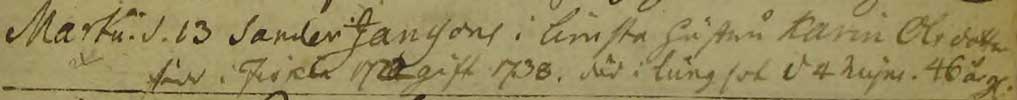 Martii. d. 13 Sander Jansons i Limsta hustru Karin Olsdotter
född i Fröskla 1722 gift 1738. död i lungsot d 4 hujus. 46 år g.